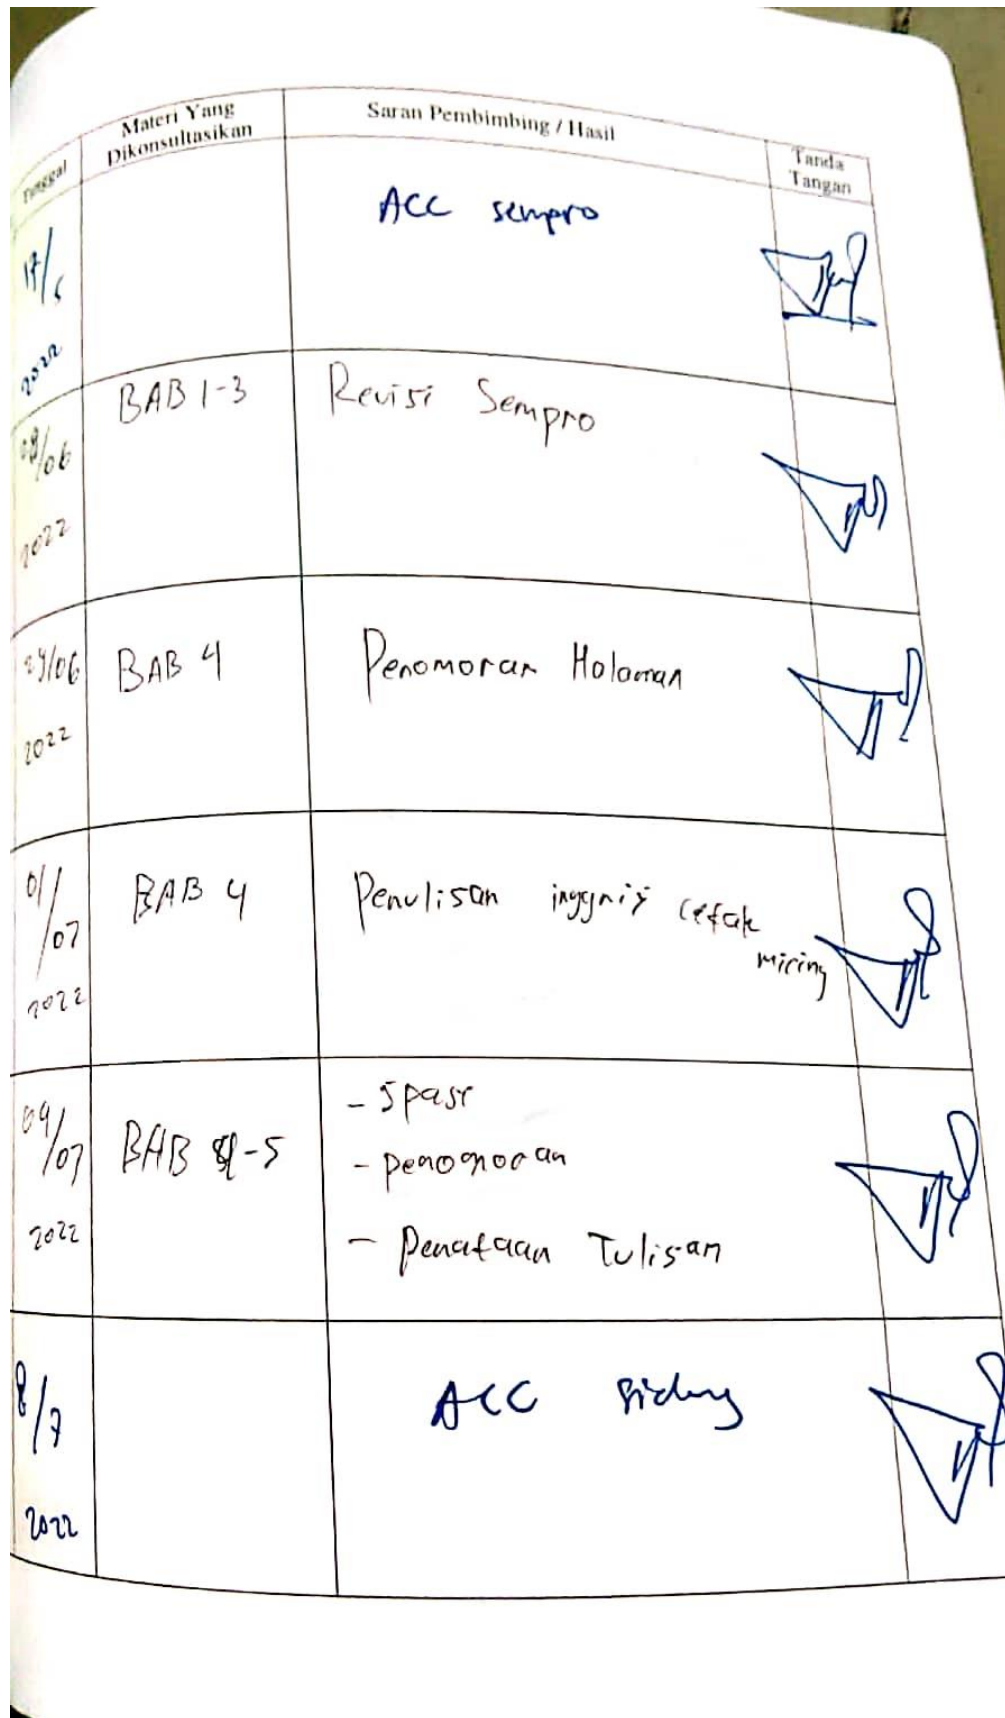 Tanggal
Materi Yang
Dikonsultasikan
Saran Pembimbing / Hasil
Tanda
Tangan
17/5
2022
ACC sempro
08/06
2022
BAB 1-3
Revisi Sempro
29/06
2022
BAB 4
Penomoran Halaman
01/07
2022
BAB 4
Penulisan cetak
miring
04/07
2022
BAB 4-5
- Spasi
- penomoran
- Penataan Tulisan
8/7
2022
ACC Sidang